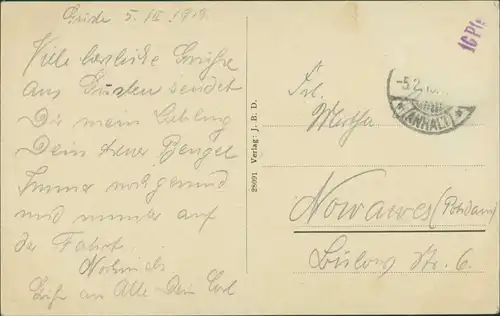 5. III. 1919.
Viele herzliche Grüße
aus Güsten sendet
Dir mein Liebling
Dein treuer Bengel
Immer noch gesund
und munter auf
der Fahrt.
Nochmals
Grüße an Alle Dein
28091 Verlag: J. B. D.
-5.2.
(ANHALT)
Frl.
Martha
Nowawes (Potsdam)
Bülow Str. 6.